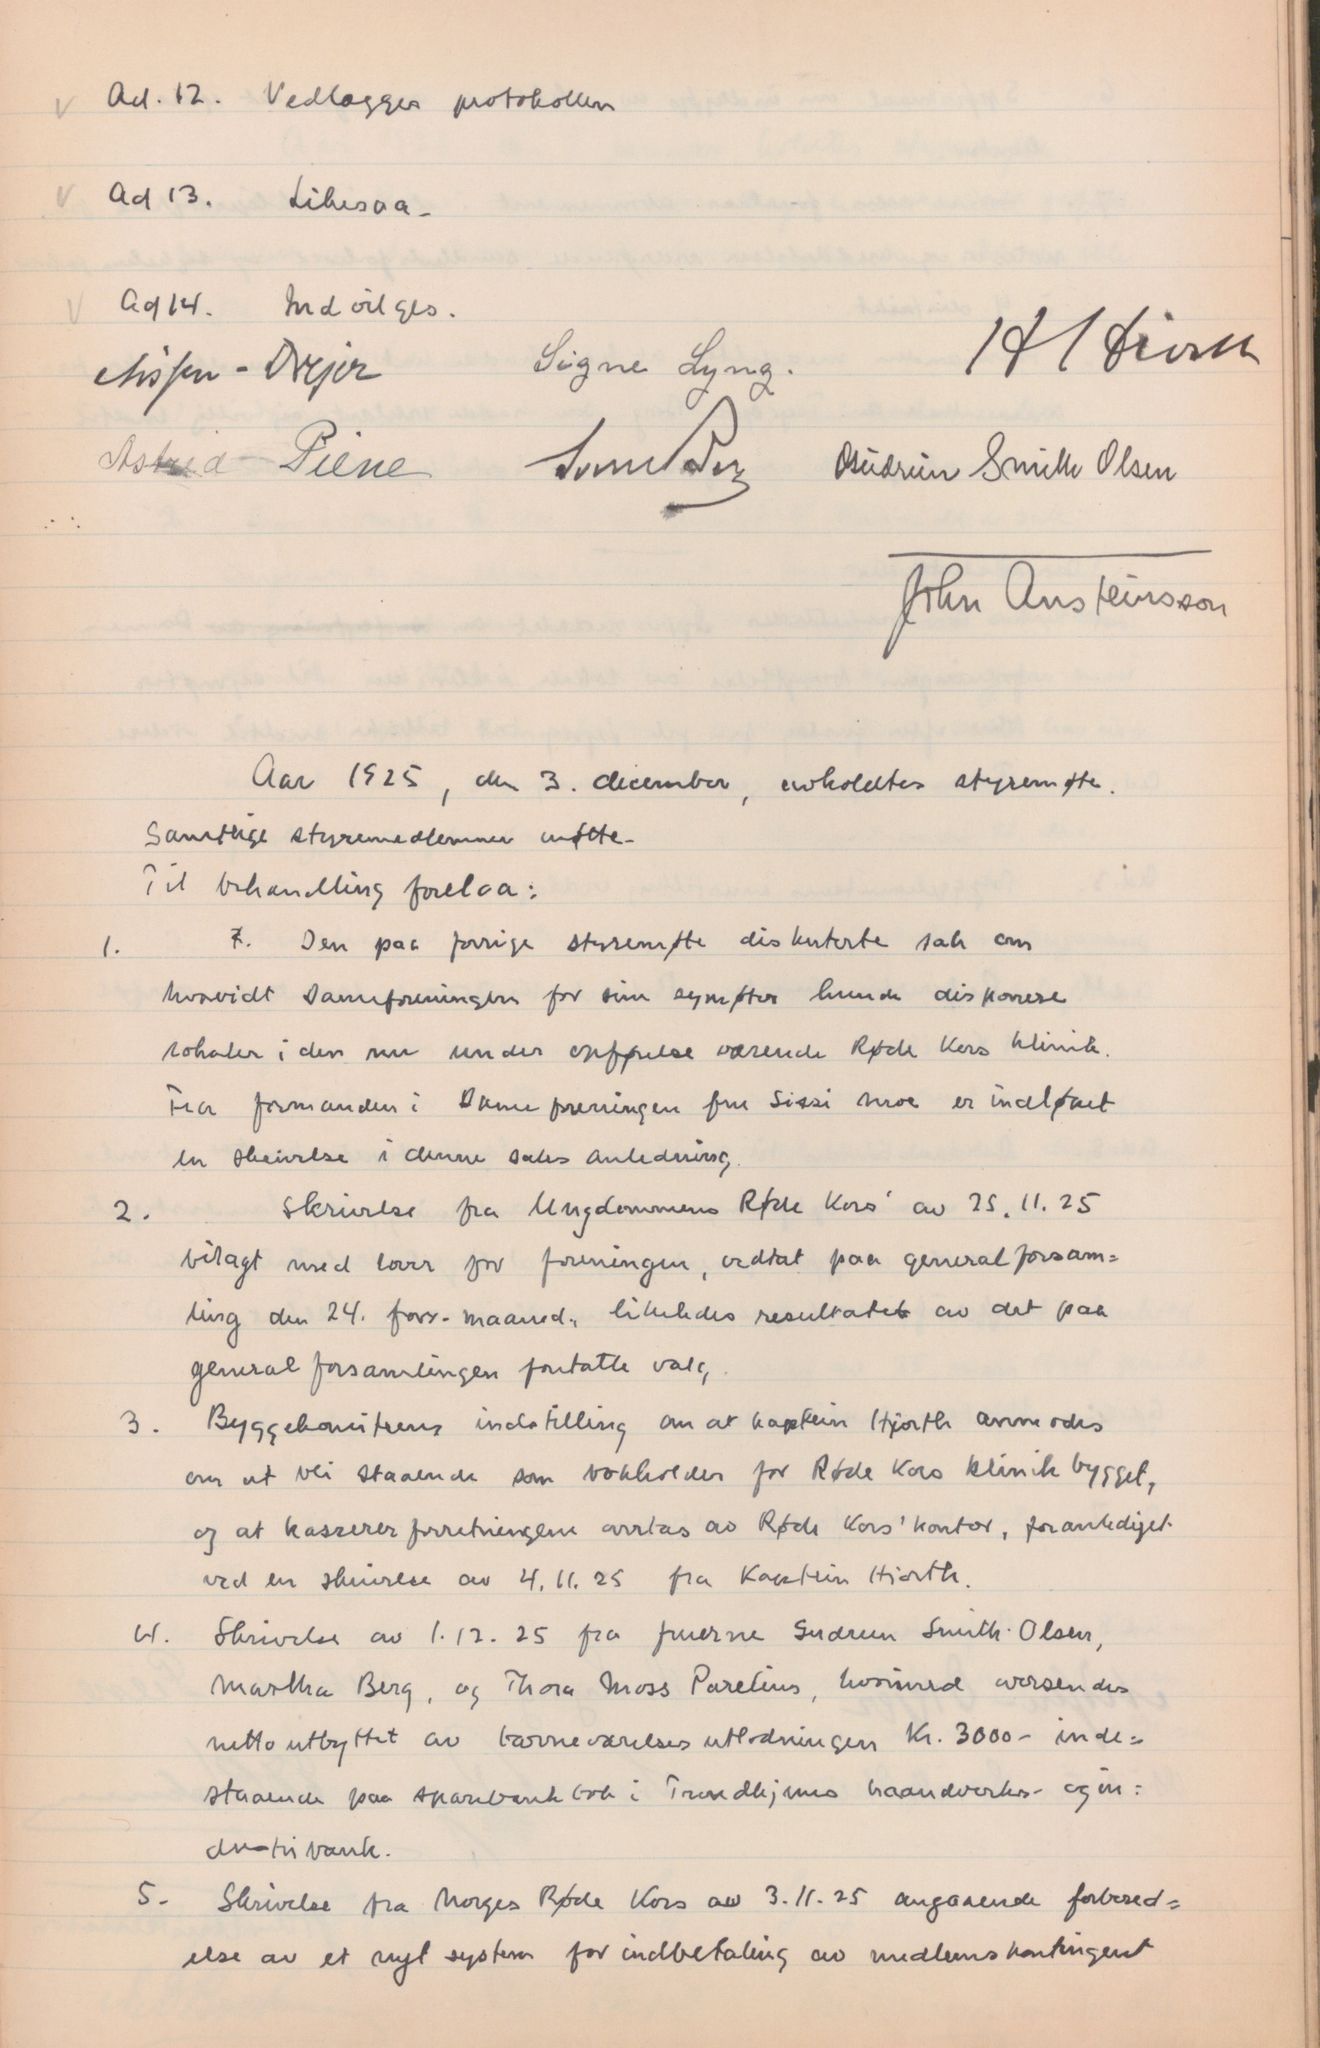 v Ad. 12. Vedlægges protokollen
v Ad 13. Likesaa -
v Ad 14. Indvilges.
Nissen - Drejer Signe Lyng. H Hiorth
Astrid Piene Gudrun Smith Olsen
John Austeinsson
Aar 1925, den 3. december, avholdtes styremøte.
Samtlige styremedlemmer møtte -
Til behandling forelaa:
1. Den paa forrige styremøte diskuterte sak om
hvorvidt Dameforeningen for sine symøter kunde disponere
lokaler i den nu under opførelse værende Røde Kors klinik.
Fra formanden i Dameforeningen fru Sissi Moe er indløpet
en skrivelse i denne saks anledning.
2. Skrivelse fra Ungdommens Røde Kors' av 25.11.25
bilagt med lover for foreningen, vedtat paa generalforsam=
ling den 24. forr. maaned, likeledes resultatet av det paa
generalforsamlingen foretatte valg.
3. Byggekomiteens indstilling om at kaptein Hjorth anmodes
om at bli staaende som bokholder for Røde Kors klinikbygget,
og at kassererforretningene overtas av Røde Kors' kontor, foranlediget
ved en skrivelse av 4.11.25 fra Kaptein Hiorth.
4. Skrivelse av 1.12.25 fra fruerne Gudrun Smith-Olsen,
Martha Berg, og Thora Moss Parelius, hvormed oversendes
netto utbyttet av barneværelsesutlodningen Kr. 3000 - inde=
staaende paa sparebankbok i Trondhjems haandverks- og in=
dustribank.
5 - Skrivelse fra Norges Røde Kors av 3.11.25 angaaende forbered=
else av et nyt system for indbetaling av medlemskontingent